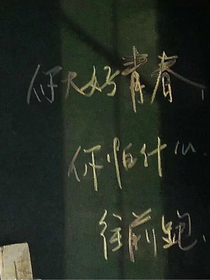 你大好青春,
你怕什么
往前跑、